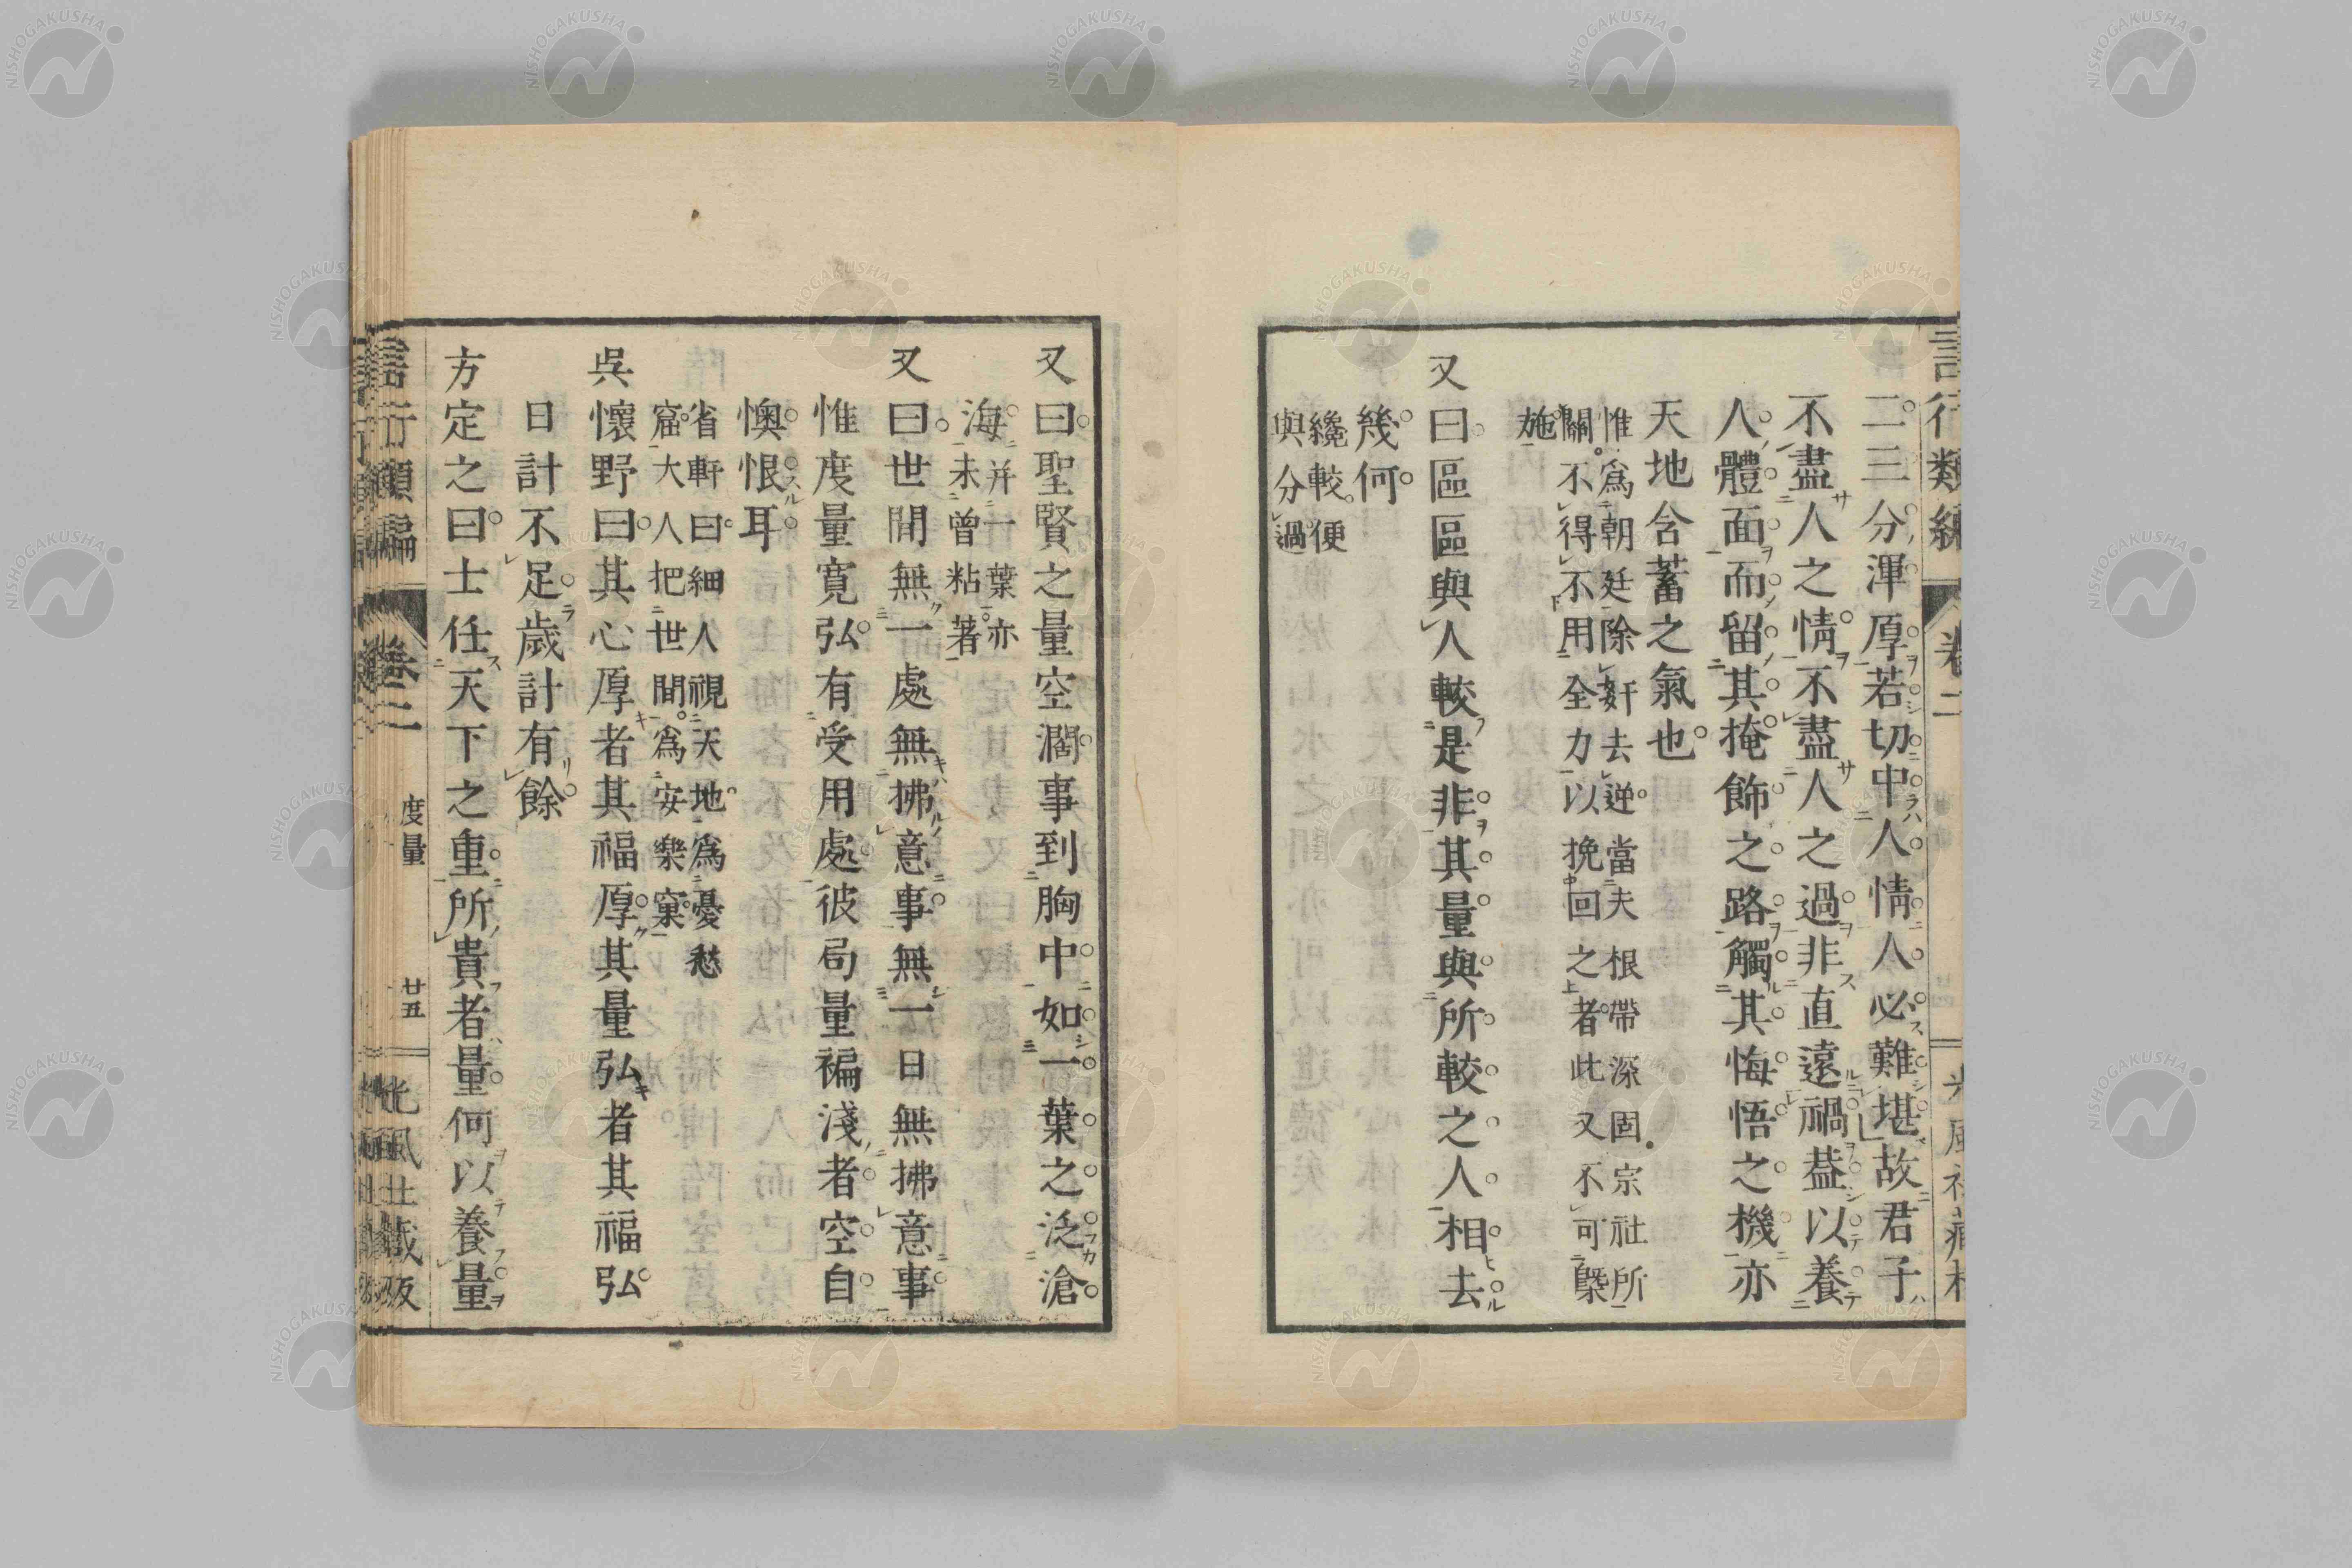 二三分渾厚若切中人情人必難堪故君子
不盡人之情不盡人之過非直遠禍葢以養
人體面而留其掩飾之路觸其悔悟之機亦
天地含蓄之氣也
惟爲朝廷除奸去逆當夫根帶深固宗社所
關不得不用全力以挽回之者此又不可槩
施
又曰區區與人較是非其量與所較之人相去
幾何
纔較便
與分過
又曰聖賢之量空濶事到胸中如一葉之泛滄
海
并一葉亦
未曾粘著
又曰世間無一處無拂意事無一日無拂意事
惟度量寛弘有受用處彼局量褊淺者空自
懊恨耳
省軒曰細人視天地爲憂愁
窟大人把世間爲安樂窠
吳懷野曰其心厚者其福厚其量弘者其福弘
日計不足歲計有餘
方定之曰士任天下之重所貴者量何以養量
言行類編 卷二 度量 廿五 光風社藏板